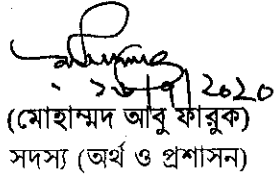 2020
(মোহাম্মদ আবু ফারুক)
সদস্য (অর্থ ও প্রশাসন)